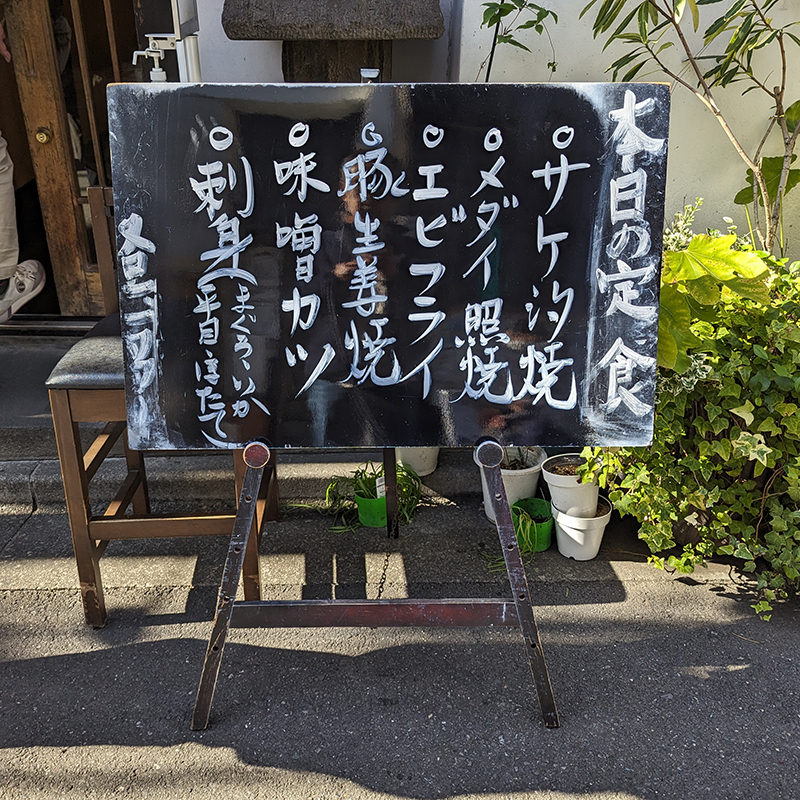 本日の定食
○サケ汐焼
○メダイ照焼
○エビフライ
○豚生姜焼
○味噌カツ
○刺身(まぐろ、いか
平目、ほたて)